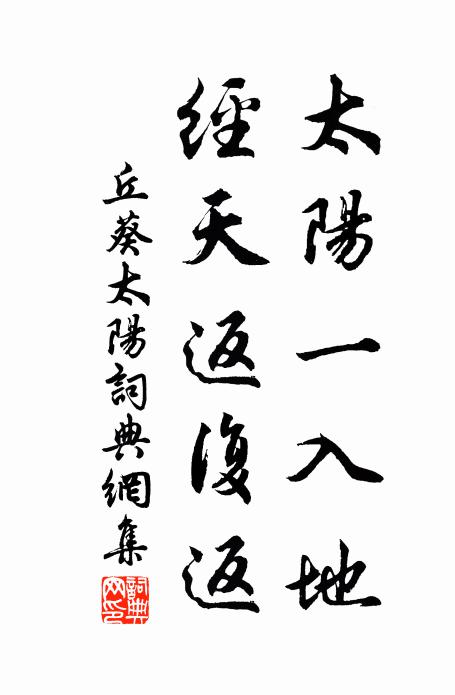 太陽一入地
經天返復返
丘葵太陽詞典網集
詞典網印